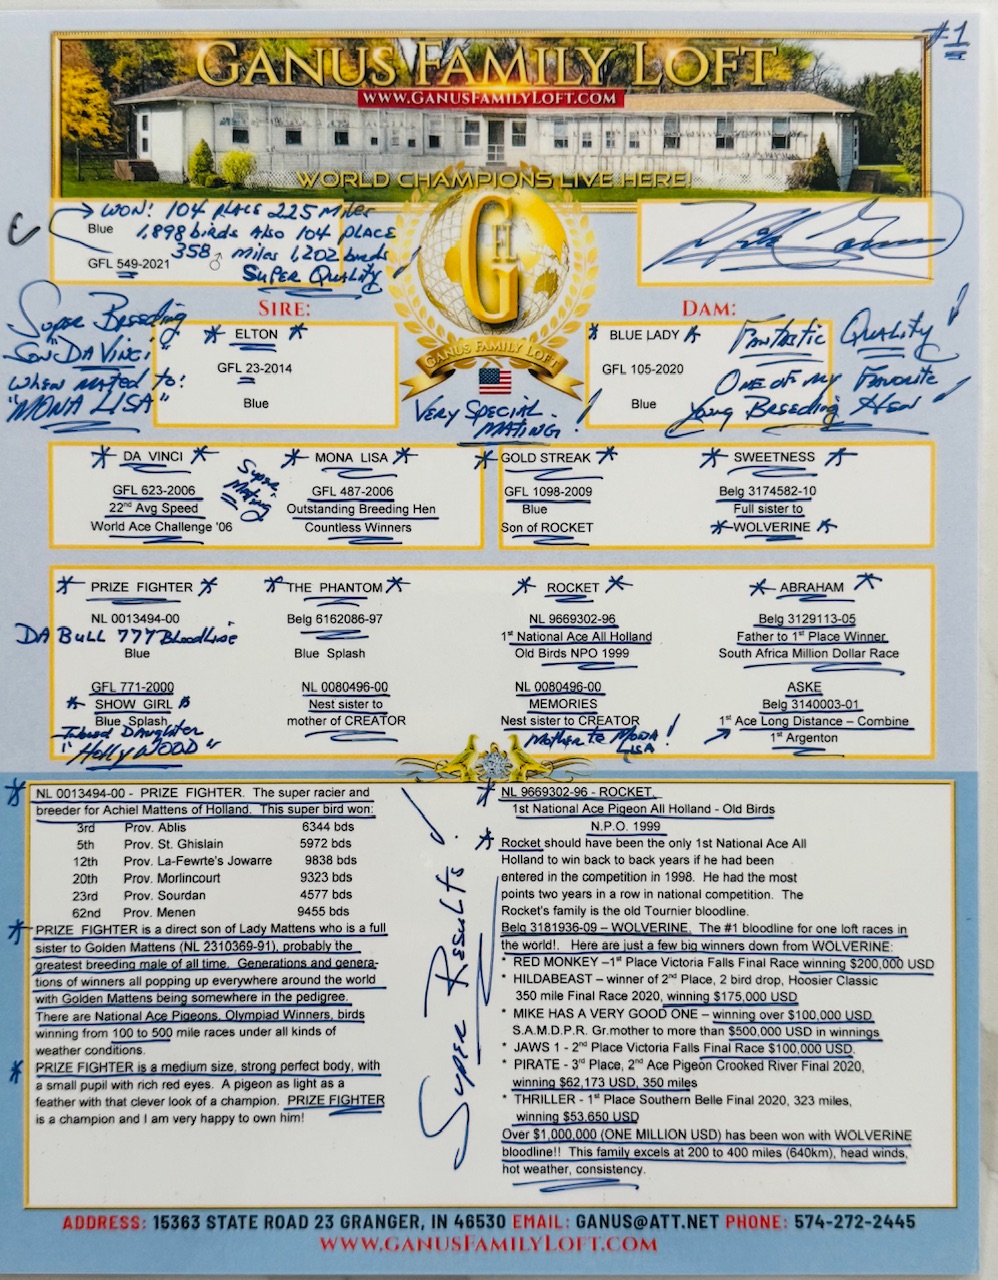 #1
GANUS FAMILY LOFT
WWW.GANUSFAMILYLOFT.COM
WORLD CHAMPIONS LIVE HERE!
WON! 104 PLACE 225 Miles
Blue
1,898 birds Also 104 PLACE
358 Miles 1,202 birds
GFL 549-2021 ♂
SUPER QUALITY!
GFL
GANUS FAMILY LOFT
SIRE:
* ELTON *
GFL 23-2014
Blue
Super Breeding
Son "DA Vinci"
When MATED to:
"MONA LISA"
VERY SPECIAL
MATING!
DAM:
* BLUE LADY *
GFL 105-2020
Blue
FANTASTIC QUALITY!
ONE OF MY FAVORITE
Young Breeding Hens!
* DA VINCI *
GFL 623-2006
22nd Avg Speed
World Ace Challenge '06
Super
Mating
* MONA LISA *
GFL 487-2006
Outstanding Breeding Hen
Countless Winners
* GOLD STREAK *
GFL 1098-2009
Blue
Son of ROCKET
* SWEETNESS *
Belg 3174582-10
Full sister to
* WOLVERINE *
* PRIZE FIGHTER *
NL 0013494-00
DA BULL 777 Bloodline
Blue
GFL 771-2000
* SHOW GIRL *
Blue Splash
Inbred Daughter
"HOLLYWOOD"
* THE PHANTOM *
Belg 6162086-97
Blue Splash
NL 0080496-00
Nest sister to
mother of CREATOR
* ROCKET *
NL 9669302-96
1st National Ace All Holland
Old Birds NPO 1999
NL 0080496-00
MEMORIES
Nest sister to CREATOR
Mother to MONA LISA!
* ABRAHAM *
Belg 3129113-05
Father to 1st Place Winner
South Africa Million Dollar Race
ASKE
Belg 3140003-01
1st Ace Long Distance – Combine
1st Argenton
* NL 0013494-00 - PRIZE FIGHTER. The super racier and
breeder for Achiel Mattens of Holland. This super bird won:
3rd Prov. Ablis 6344 bds
5th Prov. St. Ghislain 5972 bds
12th Prov. La-Fewrte's Jowarre 9838 bds
20th Prov. Morlincourt 9323 bds
23rd Prov. Sourdan 4577 bds
62nd Prov. Menen 9455 bds
* PRIZE FIGHTER is a direct son of Lady Mattens who is a full
sister to Golden Mattens (NL 2310369-91), probably the
greatest breeding male of all time. Generations and genera-
tions of winners all popping up everywhere around the world
with Golden Mattens being somewhere in the pedigree.
There are National Ace Pigeons, Olympiad Winners, birds
winning from 100 to 500 mile races under all kinds of
weather conditions.
* PRIZE FIGHTER is a medium size, strong perfect body, with
a small pupil with rich red eyes. A pigeon as light as a
feather with that clever look of a champion. PRIZE FIGHTER
is a champion and I am very happy to own him!
Super Results!
* NL 9669302-96 - ROCKET.
1st National Ace Pigeon All Holland - Old Birds
N.P.O. 1999
* Rocket should have been the only 1st National Ace All
Holland to win back to back years if he had been
entered in the competition in 1998. He had the most
points two years in a row in national competition. The
Rocket's family is the old Tournier bloodline.
Belg 3181936-09 – WOLVERINE. The #1 bloodline for one loft races in
the world!. Here are just a few big winners down from WOLVERINE:
* RED MONKEY –1st Place Victoria Falls Final Race winning $200,000 USD
* HILDABEAST – winner of 2nd Place, 2 bird drop, Hoosier Classic
350 mile Final Race 2020, winning $175,000 USD
* MIKE HAS A VERY GOOD ONE – winning over $100,000 USD
S.A.M.D.P.R. Gr.mother to more than $500,000 USD in winnings
* JAWS 1 - 2nd Place Victoria Falls Final Race $100,000 USD.
* PIRATE - 3rd Place, 2nd Ace Pigeon Crooked River Final 2020,
winning $62,173 USD, 350 miles
* THRILLER - 1st Place Southern Belle Final 2020, 323 miles,
winning $53,650 USD
Over $1,000,000 (ONE MILLION USD) has been won with WOLVERINE
bloodline!! This family excels at 200 to 400 miles (640km), head winds,
hot weather, consistency.
ADDRESS: 15363 STATE ROAD 23 GRANGER, IN 46530 EMAIL: GANUS@ATT.NET PHONE: 574-272-2445
WWW.GANUSFAMILYLOFT.COM